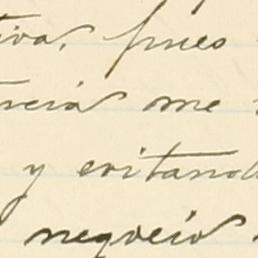 tiva, pues
rcia me
y evitand
negocio